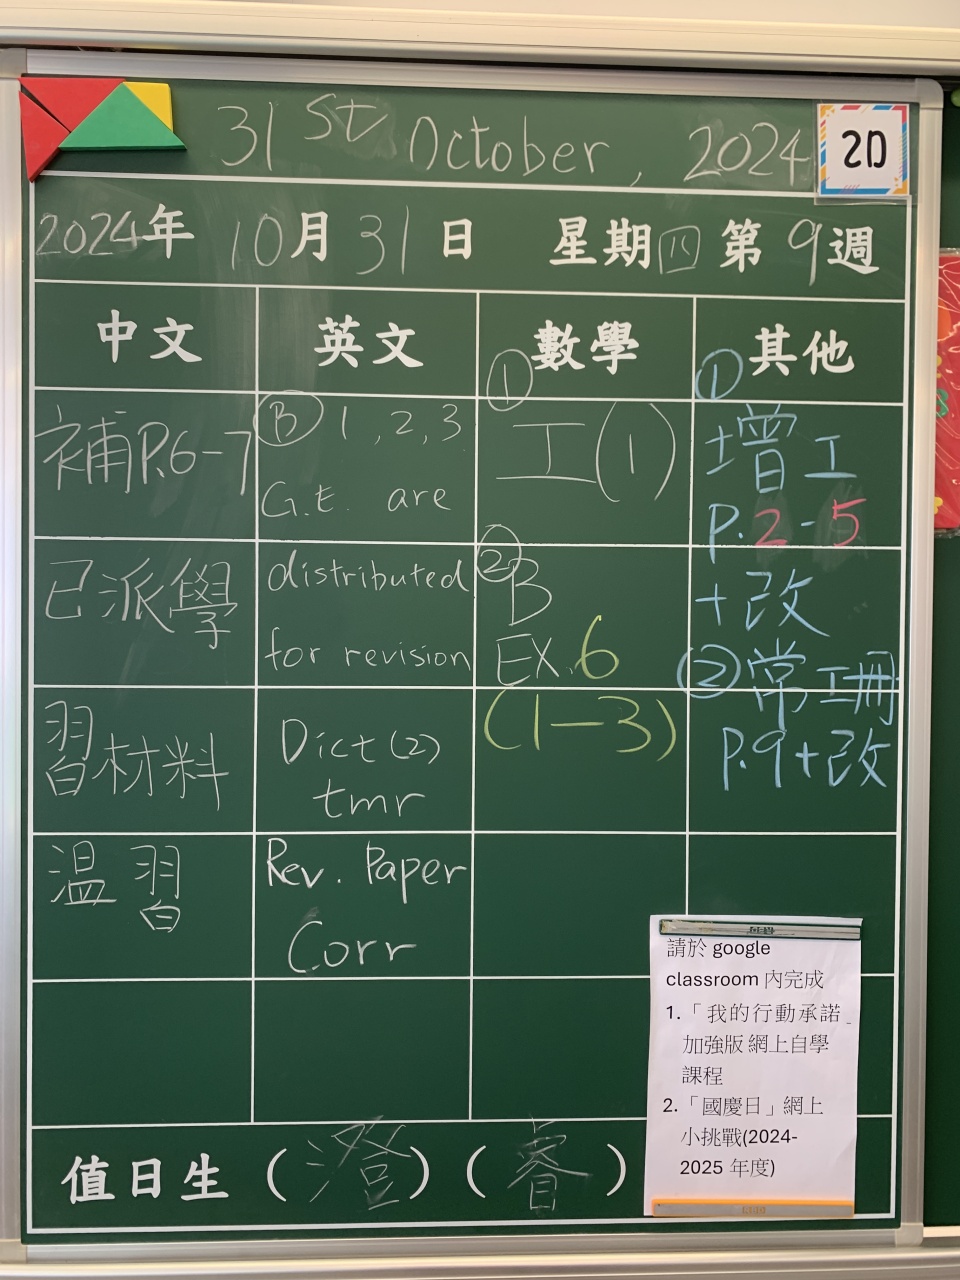 31st October, 2024
2D
2024年 10月31日 星期四 第9週
中文
補P.6-7
已派學
習材料
溫習
英文
Ⓑ 1, 2, 3
G.t. are
distributed
for revision
Dict(2)
tmr
Rev. Paper
Corr
數學
①
工(1)
②
B
EX.6
(1-3)
其他
①
增工
P.2-5
+改
②常工冊
P.9+改
請於 google
classroom 內完成
1.「我的行動承諾」
加強版 網上自學
課程
2.「國慶日」網上
小挑戰(2024-
2025 年度)
值日生 (澄) (睿)